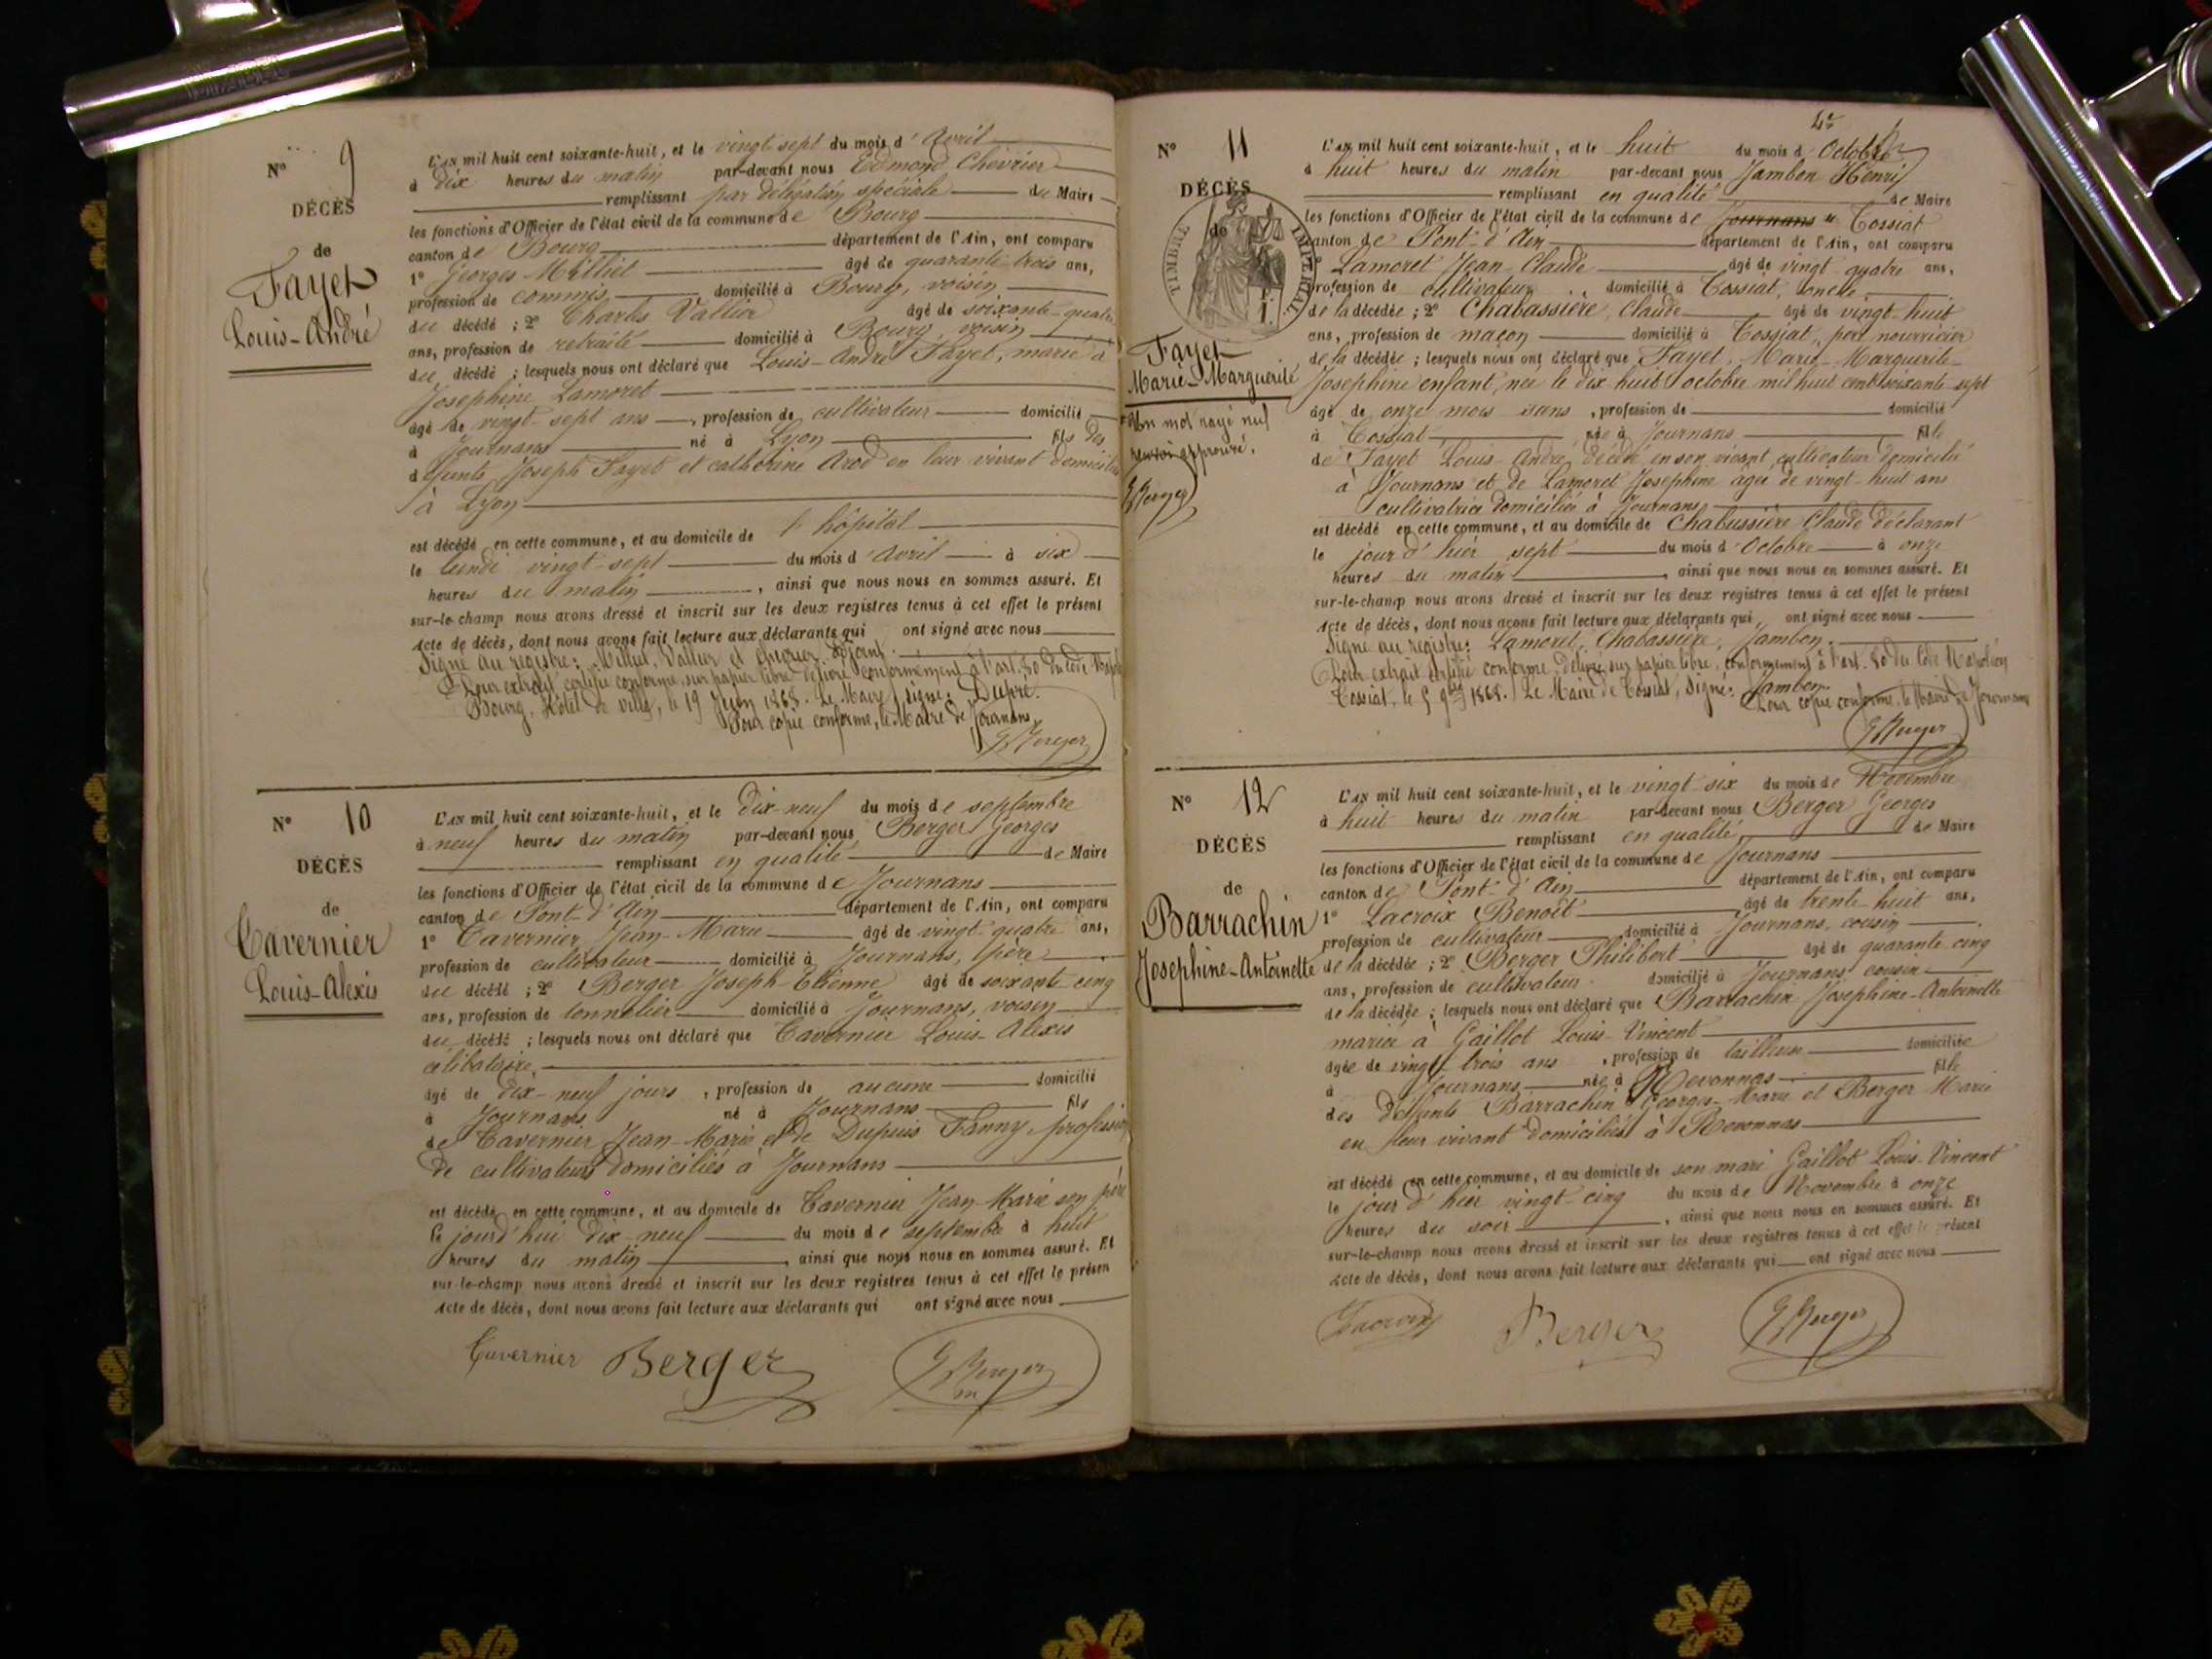 N° 9
DÉCÈS
de
Fayet
Louis-André
L'AN mil huit cent soixante-huit, et le vingt sept du mois d'Avril
à dix heures du matin par-devant nous Edmond Chevrier
remplissant par délégation spéciale du Maire
les fonctions d'Officier de l'état civil de la commune de Bourg
canton de Bourg département de l'Ain, ont comparu
1° Georges Milliet âgé de quarante-trois ans,
profession de commis domicilié à Bourg, voisin
du décédé ; 2° Charles Vallier âgé de soixante-quatre
ans, profession de retraité domicilié à Bourg, voisin
du décédé ; lesquels nous ont déclaré que Louis-André Fayet, marié à
Josephine Lamoret
âgé de vingt-sept ans, profession de cultivateur domicilié
à Journans né à Lyon fils des
défunts Joseph Fayet et catherine Arod en leur vivant domiciliés
à Lyon
est décédé en cette commune, et au domicile de l'hôpital
le lundi vingt-sept du mois d'Avril à six
heures du matin, ainsi que nous nous en sommes assuré. Et
sur-le-champ nous avons dressé et inscrit sur les deux registres tenus à cet effet le présent
acte de décès, dont nous avons fait lecture aux déclarants qui ont signé avec nous
Signé au registre : Milliet, Vallier et Chevrier adjoint.
Pour extrait certifié conforme, sur papier libre délivré conformément à l'art. 80 du Code Napol
Bourg, Hôtel de ville, le 19 Juin 1868. Le Maire, signé : Dupré.
Pour copie conforme, le Maire de Journans,
G Berger
N° 10
DÉCÈS
de
Tavernier
Louis-Alexis
L'AN mil huit cent soixante-huit, et le dix-neuf du mois de septembre
à neuf heures du matin par-devant nous Berger Georges
remplissant en qualité de Maire
les fonctions d'Officier de l'état civil de la commune de Journans
canton de Pont-d'Ain département de l'Ain, ont comparu
1° Tavernier Jean-Marie âgé de vingt-quatre ans,
profession de cultivateur domicilié à Journans, père
du décédé ; 2° Berger Joseph Etienne âgé de soixante cinq
ans, profession de tonnelier domicilié à Journans, voisin
du décédé ; lesquels nous ont déclaré que Tavernier Louis-Alexis
célibataire,
âgé de dix-neuf jours, profession de aucune domicilié
à Journans né à Journans fils
de Tavernier Jean-Marie et de Dupuis Fanny, profession
de cultivateurs domiciliés à Journans
est décédé en cette commune, et au domicile de Tavernier Jean-Marie son père
le jourd'hui dix-neuf du mois de septembre à huit
heures du matin, ainsi que nous nous en sommes assuré. Et
sur-le-champ nous avons dressé et inscrit sur les deux registres tenus à cet effet le présen
acte de décès, dont nous avons fait lecture aux déclarants qui ont signé avec nous
Tavernier Berger G Berger
m
N° 11
DÉCÈS
de
TIMBRE IMPÉRIAL
Fayet
Marie-Marguerite
Un mot rayé nul
approuvé.
G Berger
L'AN mil huit cent soixante-huit, et le huit du mois d'Octobre
à huit heures du matin par-devant nous Jambon Henri
remplissant en qualité de Maire
les fonctions d'Officier de l'état civil de la commune de Journans Tossiat
canton de Pont-d'Ain département de l'Ain, ont comparu
1° Lamoret Jean-Claude âgé de vingt-quatre ans,
profession de cultivateur domicilié à Tossiat, oncle
de la décédée ; 2° Chabassière, Claude âgé de vingt-huit
ans, profession de maçon domicilié à Tossiat, père nourricier
de la décédée ; lesquels nous ont déclaré que Fayet, Marie-Marguerite-
Josephine enfant, née le dix huit octobre mil huit cent soixante-sept
âgé de onze mois sans, profession de domicilié
à Tossiat née à Journans fille
de Fayet Louis-André, décédé en son vivant cultivateur domicilié
à Journans et de Lamoret Josephine âgée de vingt-huit ans
cultivatrice domiciliée à Journans
est décédé en cette commune, et au domicile de Chabussière Claude déclarant
le jour d'hier sept du mois d'Octobre à onze
heures du matin, ainsi que nous nous en sommes assuré. Et
sur-le-champ nous avons dressé et inscrit sur les deux registres tenus à cet effet le présent
acte de décès, dont nous avons fait lecture aux déclarants qui ont signé avec nous
Signé au registre : Lamoret, Chabassière, Jambon.
Pour extrait certifié conforme, délivré sur papier libre, conformément à l'art. 80 du Code Napoléon
Tossiat, le 5 9bre 1868. Le Maire de Tossiat, Signé : Jambon.
Pour copie conforme, le Maire de Journans
G Berger
N° 12
DÉCÈS
de
Barrachin
Josephine-Antoinette
L'AN mil huit cent soixante-huit, et le vingt six du mois de Novembre
à huit heures du matin par-devant nous Berger Georges
remplissant en qualité de Maire
les fonctions d'Officier de l'état civil de la commune de Journans
canton de Pont-d'Ain département de l'Ain, ont comparu
1° Lacroix Benoît âgé de trente huit ans,
profession de cultivateur domicilié à Journans, cousin
de la décédée ; 2° Berger Philibert âgé de quarante cinq
ans, profession de cultivateur domicilié à Journans cousin
de la décédée ; lesquels nous ont déclaré que Barrachin Josephine-Antoinette
mariée à Gaillot Louis-Vincent
âgée de vingt trois ans, profession de tailleuse domiciliée
à Journans née à Revonnas fille
des défunts Barrachin Georges-Marie et Berger Marie
en leur vivant domiciliés à Revonnas
est décédé en cette commune, et au domicile de son mari Gaillot Louis-Vincent
le jour d'hier vingt-cinq du mois de Novembre à onze
heures du soir, ainsi que nous nous en sommes assuré. Et
sur-le-champ nous avons dressé et inscrit sur les deux registres tenus à cet effet le présent
acte de décès, dont nous avons fait lecture aux déclarants qui ont signé avec nous
Lacroix Berger G Berger